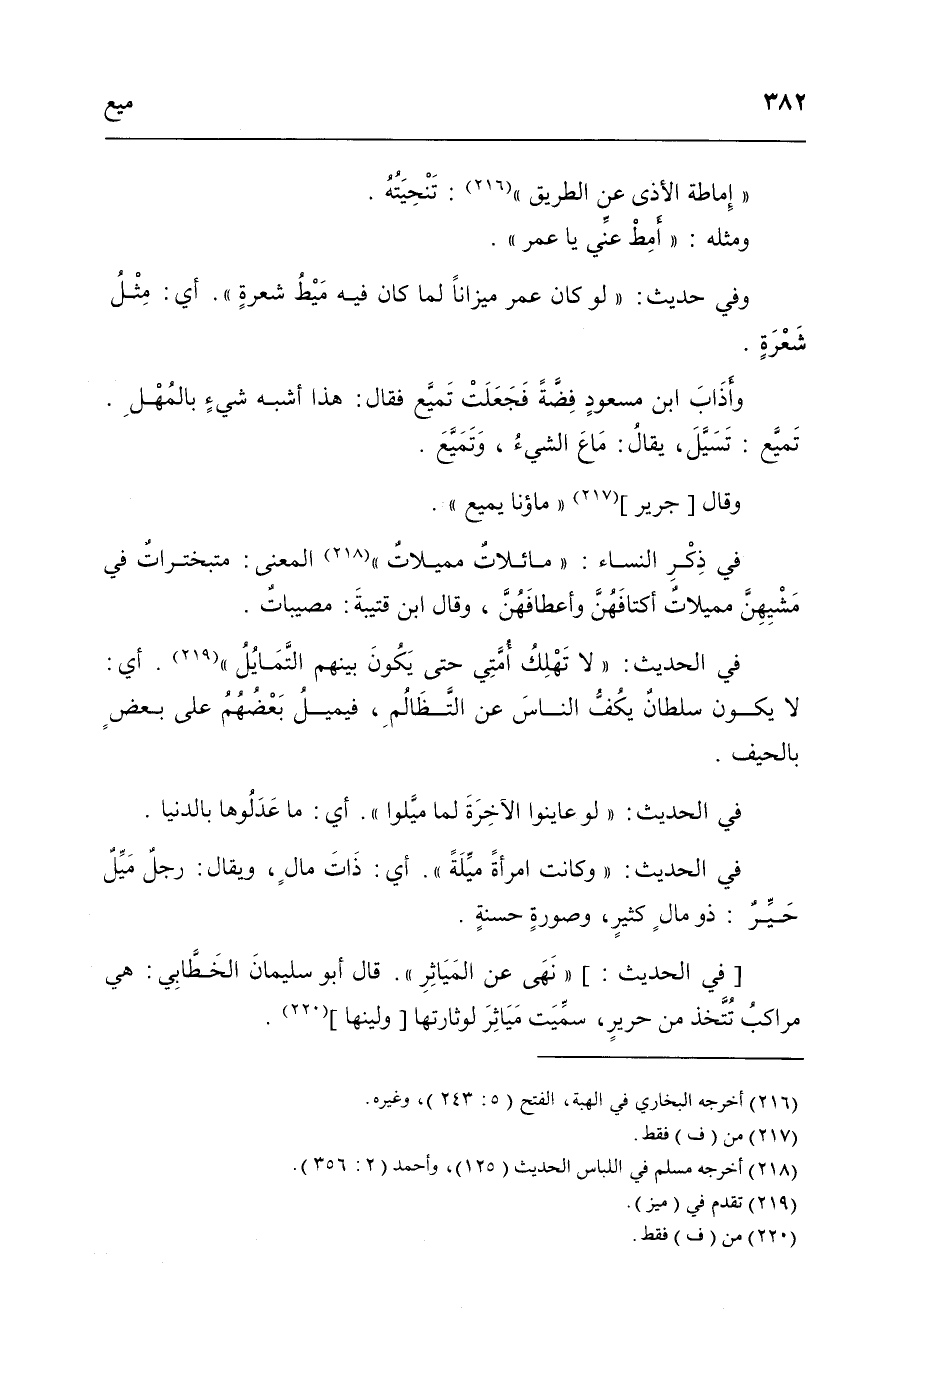 ٣٨٢
ميع
« إماطة الأذى عن الطريق »(٢١٦) : تَنْحِيَتُهُ .
ومثله : « أَمِطْ عنِّي يا عمر » .
وفي حديث : « لو كان عمر ميزاناً لما كان فيه مَيْطُ شعرةٍ ». أي : مِثْلُ
شَعْرَةٍ .
وأَذَابَ ابن مسعودٍ فِضَّةً فَجَعَلَتْ تَميَّع فقال : هذا أشبه شيءٍ بالمُهْلِ .
تَميَّع : تَسَيَّلَ ، يقالُ : مَاعَ الشيءُ ، وَتَمَيَّعَ .
وقال [ جرير ](٢١٧) « ماؤنا يميع » .
في ذِكْرِ النساء : « مائلاتٌ مميلاتٌ »(٢١٨) المعنى : متبختراتٌ في
مَشْيِهِنَّ مميلاتٌ أكتافَهُنَّ وأعطافَهُنَّ ، وقال ابن قتيبةَ : مصيباتٌ .
في الحديث : « لا تَهْلِكُ أُمَّتِي حتى يَكُونَ بينهم التَّمَايُلُ »(٢١٩) . أي :
لا يكون سلطانٌ يكُفُّ الناسَ عن التَّظَالُمِ ، فيميلُ بَعْضُهُمُ على بعضٍ
بالحيف .
في الحديث : « لو عاينوا الآخِرَةَ لما ميَّلوا ». أي : ما عَدَلُوها بالدنيا .
في الحديث : « وكانت امرأةً ميِّلَةً ». أي : ذَاتَ مالٍ ، ويقال : رجلٌ مَيِّلٌ
خَيِّرٌ : ذو مالٍ كثيرٍ ، وصورةٍ حسنةٍ .
[ في الحديث : ] « نَهَى عن المَيَاثِرِ ». قال أبو سليمانَ الخَطَّابِي : هي
مراكبُ تُتَّخذ من حريرٍ ، سمِّيَت مَيَاثِرَ لوثارتها [ ولينها ](٢٢٠) .
(٢١٦) أخرجه البخاري في الهبة، الفتح ( ٥ : ٢٤٣ )، وغيره.
(٢١٧) من ( ف ) فقط.
(٢١٨) أخرجه مسلم في اللباس الحديث ( ١٢٥)، وأحمد ( ٢ : ٣٥٦ ).
(٢١٩) تقدم في ( ميز ).
(٢٢٠) من ( ف ) فقط.